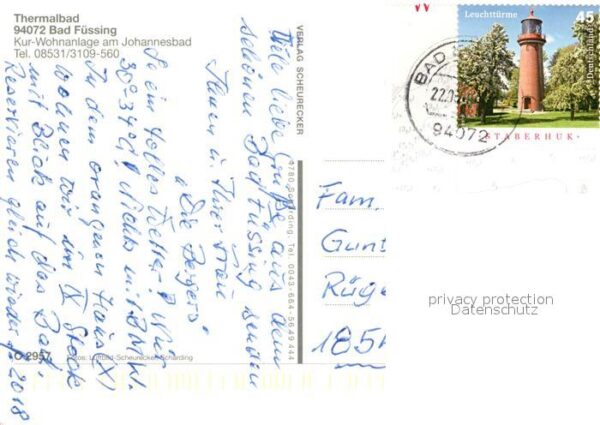 Thermalbad
94072 Bad Füssing
Kur-Wohnanlage am Johannesbad
Tel. 08531/3109-560
Viele liebe Grüße aus dem
schönen Bad Füssing senden
Ihnen u. Ihrer Frau
"Die Bergers"
So ein tolles Wetter! Nur
30°-34°
In dem orangenen Haus (X)
wohnen wir im IX Stock
mit Blick auf das Bad.
Reservieren gleich wieder f. 2018
C 2957
Fotos: Luftbild-Scheurecker-Schärding
VERLAG SCHEURECKER
4780 Schärding, Tel. 0043-664-5649444
Leuchttürme
45
Deutschland
STABERHUK
BAD
22.
94072
Fam.
Gunt
Rüge
185
privacy protection
Datenschutz